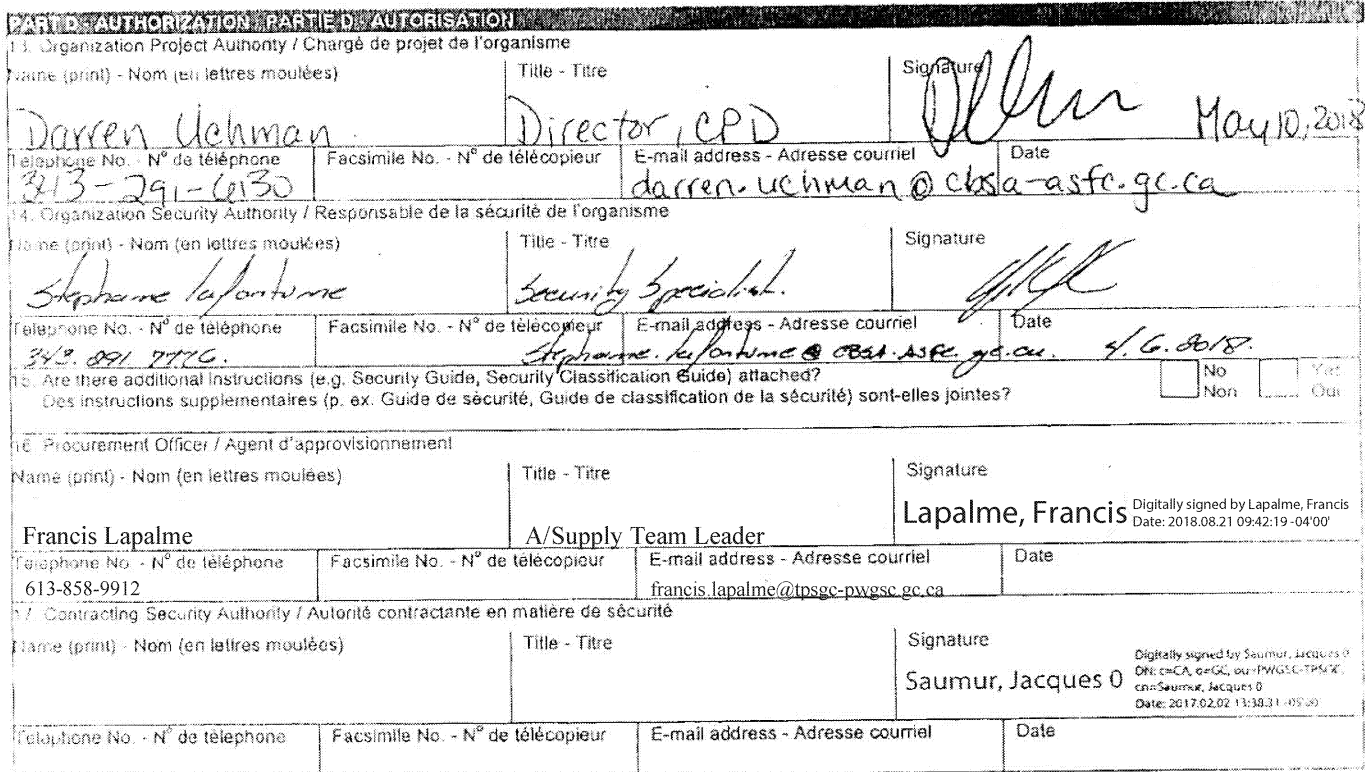 PART D - AUTHORIZATION / PARTIE D - AUTORISATION
13. Organization Project Authority / Chargé de projet de l'organisme
Name (print) - Nom (en lettres moulées) Title - Titre Signature
Darren Uchman Director, CPD May 10, 2018
Telephone No. - N° de téléphone Facsimile No. - N° de télécopieur E-mail address - Adresse courriel Date
343-291-6130 darren.uchman@cbsa-asfc.gc.ca
14. Organization Security Authority / Responsable de la sécurité de l'organisme
Name (print) - Nom (en lettres moulées) Title - Titre Signature
Stephanie Lafontaine Security Specialist.
Telephone No. - N° de téléphone Facsimile No. - N° de télécopieur E-mail address - Adresse courriel Date
343. 291 7776. 4/6.2018.
15. Are there additional instructions (e.g. Security Guide, Security Classification Guide) attached? No Yes
Des instructions supplementaires (p. ex. Guide de sécurité, Guide de classification de la sécurité) sont-elles jointes? Non Oui
16. Procurement Officer / Agent d'approvisionnement
Name (print) - Nom (en lettres moulées) Title - Titre Signature
Lapalme, Francis Digitally signed by Lapalme, Francis
Date: 2018.08.21 09:42:19 -04'00'
Francis Lapalme A/Supply Team Leader
Telephone No. - N° de téléphone Facsimile No. - N° de télécopieur E-mail address - Adresse courriel Date
613-858-9912 francis.lapalme@tpsgc-pwgsc.gc.ca
17. Contracting Security Authority / Autorité contractante en matière de sécurité
Name (print) - Nom (en lettres moulées) Title - Titre Signature
Saumur, Jacques 0 Digitally signed by Saumur, Jacques 0
DN: c=CA, o=GC, ou=PWGSC-TPSGC,
cn=Saumur, Jacques 0
Date: 2017.02.02 13:38:31 -05'00'
Telephone No. - N° de téléphone Facsimile No. - N° de télécopieur E-mail address - Adresse courriel Date